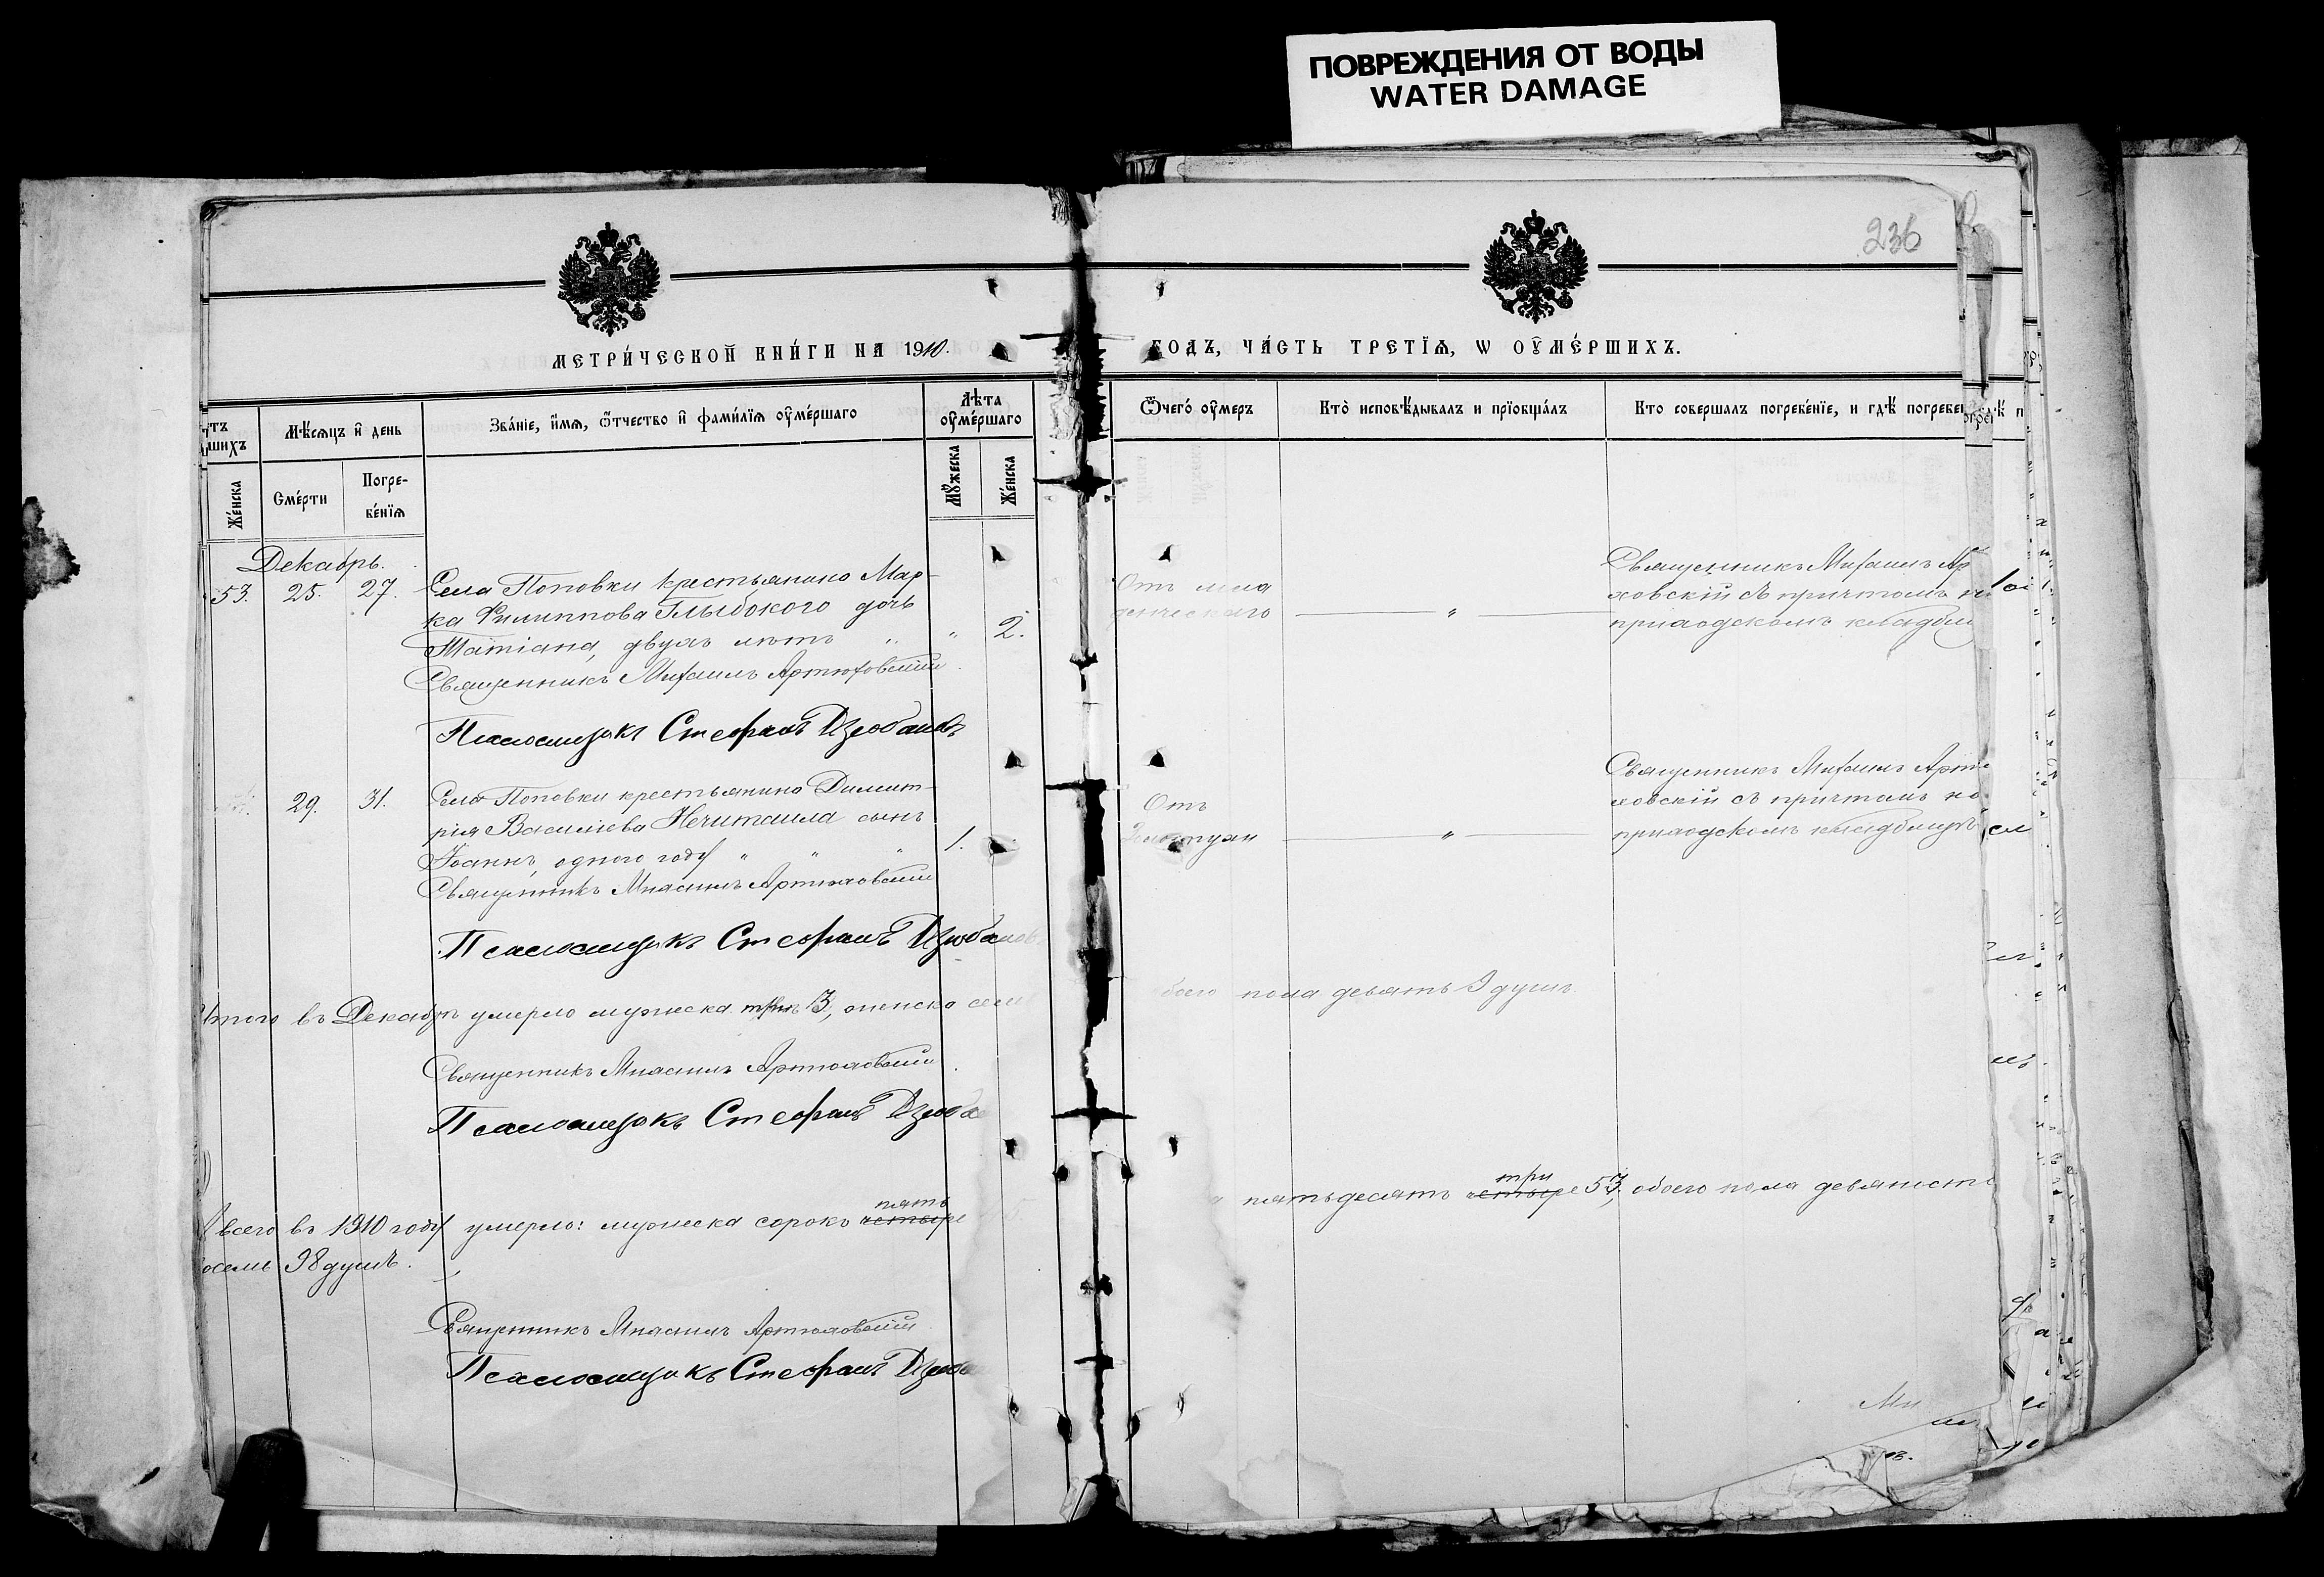 ПОВРЕЖДЕНИЯ ОТ ВОДЫ
WATER DAMAGE
236
МЕТРИ́ЧЕСКОЙ КНИ́ГИ НА 1910.
ГОДЪ, ЧА́СТЬ ТРЕТЇѦ, Ѡ ОУ҆МЕ́РШИХЪ.
Мѣ́сѧцъ и҆ день
Зва́нїе, и҆́мѧ, ѻ҆́тчество и҆ фами́лїѧ оу҆ме́ршаго
Лѣта оу҆ме́ршаго
Ѿчегѡ̀ оу҆меръ
Кто̀ исповѣ́дывалъ и прїѡбща́лъ
Кто совершалъ погребе́нїе, и гдѣ̀ погребе
Же́нска
Сме́рти
Погре-
бе́нїѧ
Мꙋ́жеска
Же́нска
Декабрь.
53. 25. 27. Села Поповки крестьянина Мар-
ка Филиппова Глыбокого дочь
Татіана, двухъ лѣтъ " " 2.
Священникъ Михаилъ Артюховскій
Псаломщикъ Стефанъ Дзюбановъ
Отъ мла
денческаго "
Священникъ Михаилъ Ар
ховскій съ причтомъ н
приходскомъ кладби
29. 31. Села Поповки крестьянина Димит-
рія Василіева Нечитаила сынъ
Іоаннъ, одного году " " " 1.
Священникъ Михаилъ Артюховскій
Псаломщикъ Стефанъ Дзюбанов
Отъ
"
Священникъ Михаилъ Артю
ховскій съ причтомъ на
приходскомъ кладбищѣ
Итого въ Декабрѣ умерло мужеска три 3, женска сем
обоего пола девять 9 душъ.
Священникъ Михаилъ Артюховскій
Псаломщикъ Стефанъ Дзюба
пять
А всего въ 1910 году умерло: мужеска сорокъ четыре
три
пятьдесятъ четыре 53, обоего пола девяносто
восемь 98 душъ.
Священникъ Михаилъ Артюховскій
Псаломщикъ Стефанъ Дзюба